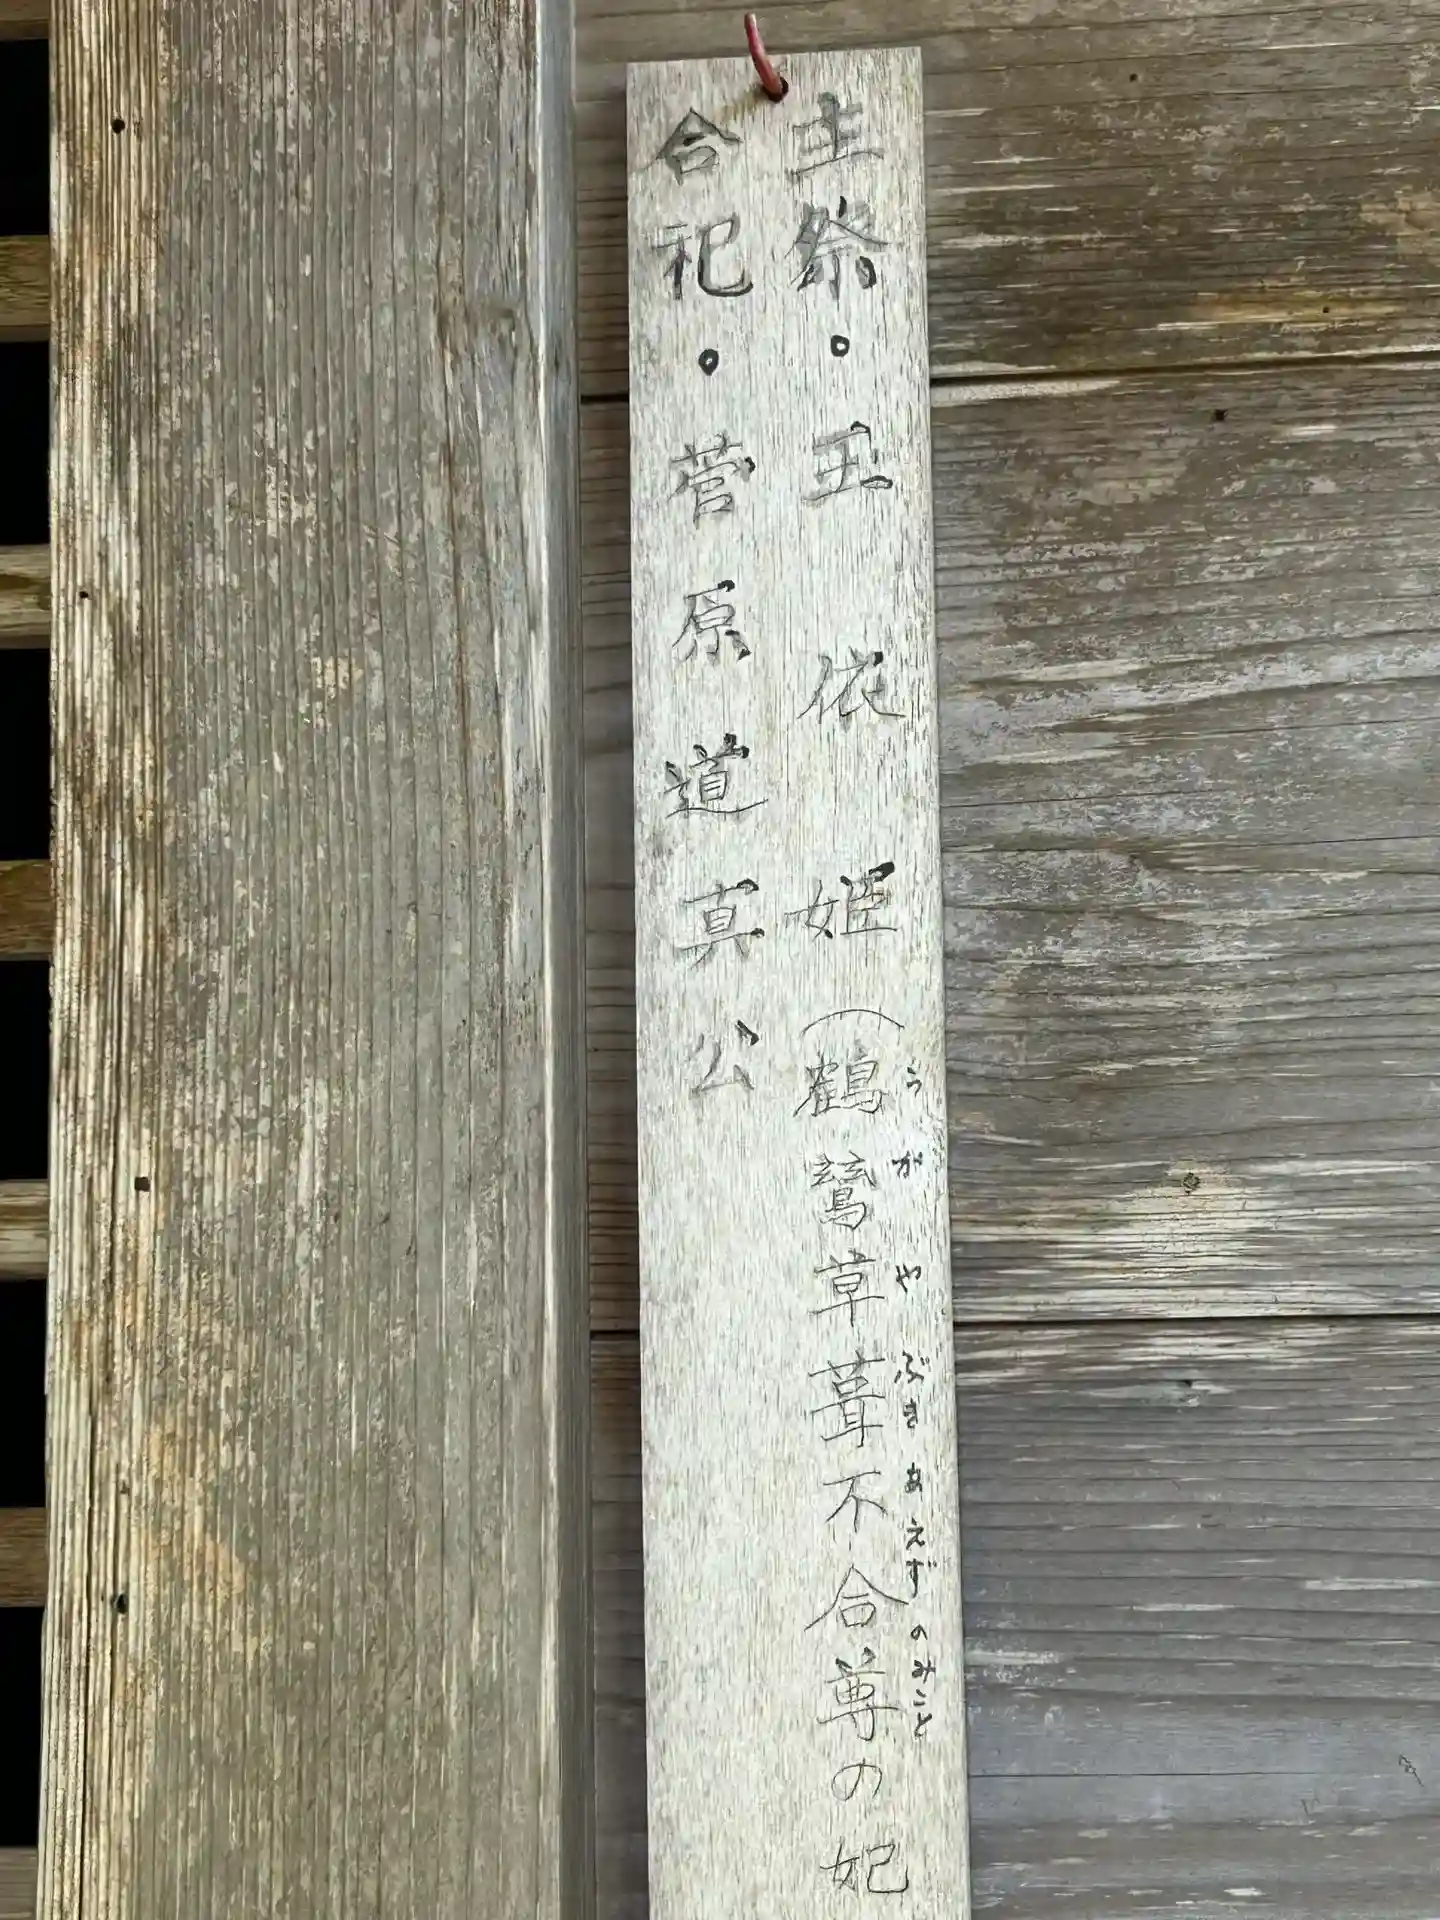 主祭。玉依姫(鶴鵞草葺不合尊の妃
うがやぶきあえずのみこと
合祀。菅原道真公